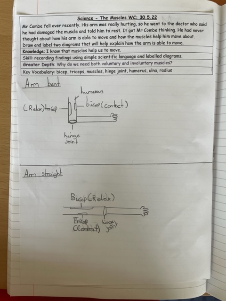 Science - The Muscles WC: 30.5.22
Mr Conize fell over recently. His arm was really hurting, so he went to the doctor who said
he had damaged the muscle and told him to rest. It got Mr Conize thinking. He had never
thought about how his arm is able to move and how the muscles help him move about.
Draw and label two diagrams that will help explain how the arm is able to move.
Knowledge: I know that muscles help us to move.
Skill: recording findings using simple scientific language and labelled diagrams.
Greater Depth: Why do we need both voluntary and involuntary muscles?
Key Vocabulary: bicep, triceps, muscles, hinge joint, humerus, ulna, radius
Arm bent
humerous
bicep (contract)
(Relax) tricep
hinge
joint
Arm straight
Bicep (Relax)
Tricep
(Contract)